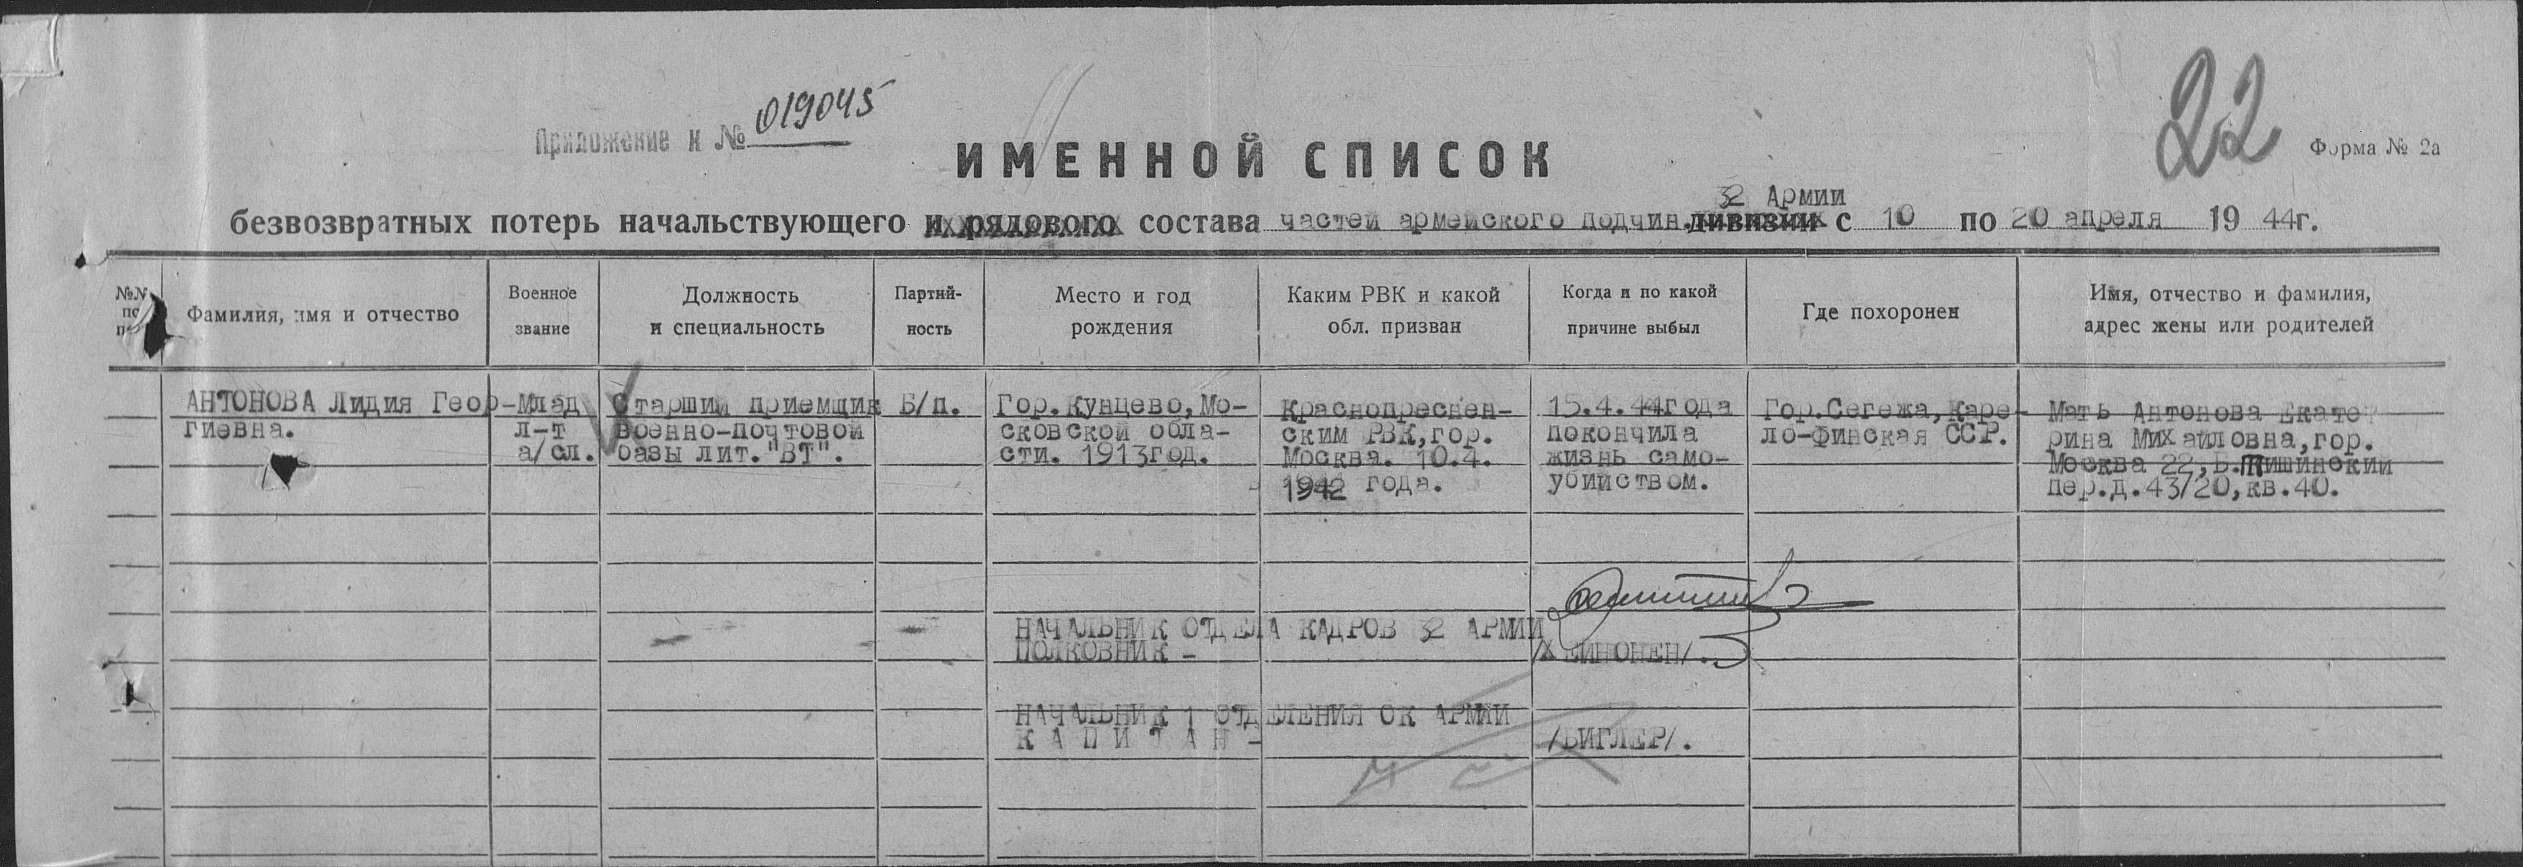 22
Приложение к № 019045
ИМЕННОЙ СПИСОК
Форма № 2а
32 Армии
безвозвратных потерь начальствующего и рядового состава частей армейского подчин. дивизии с 10 по 20 апреля 1944г.
№№ по п
Фамилия, имя и отчество
Военное звание
Должность и специальность
Партий-ность
Место и год рождения
Каким РВК и какой обл. призван
Когда и по какой причине выбыл
Где похоронен
Имя, отчество и фамилия, адрес жены или родителей
АНТОНОВА Лидия Геор-
гиевна.
Млад
л-т
а/сл.
Старший приемщик
военно-почтовой
базы лит."ВТ".
Б/п.
Гор.Кунцево, Мо-
сковской обла-
сти. 1913год.
Краснопреснен-
ским РВК,гор.
Москва. 10.4.
1942 года.
15.4.44года
покончила
жизнь само-
убийством.
Гор.Сегежа,Каре-
ло-Финская ССР.
Мать Антонова Екате
рина Михайловна,гор.
Москва 22,Б.Тишинский
пер.д.43/20,кв.40.
НАЧАЛЬНИК ОТДЕЛА КАДРОВ 32 АРМИИ
ПОЛКОВНИК - /ХЕЙНОНЕН/.
НАЧАЛЬНИК 1 ОТДЕЛЕНИЯ ОК АРМИИ
КАПИТАН - /БИГЛЕР/.